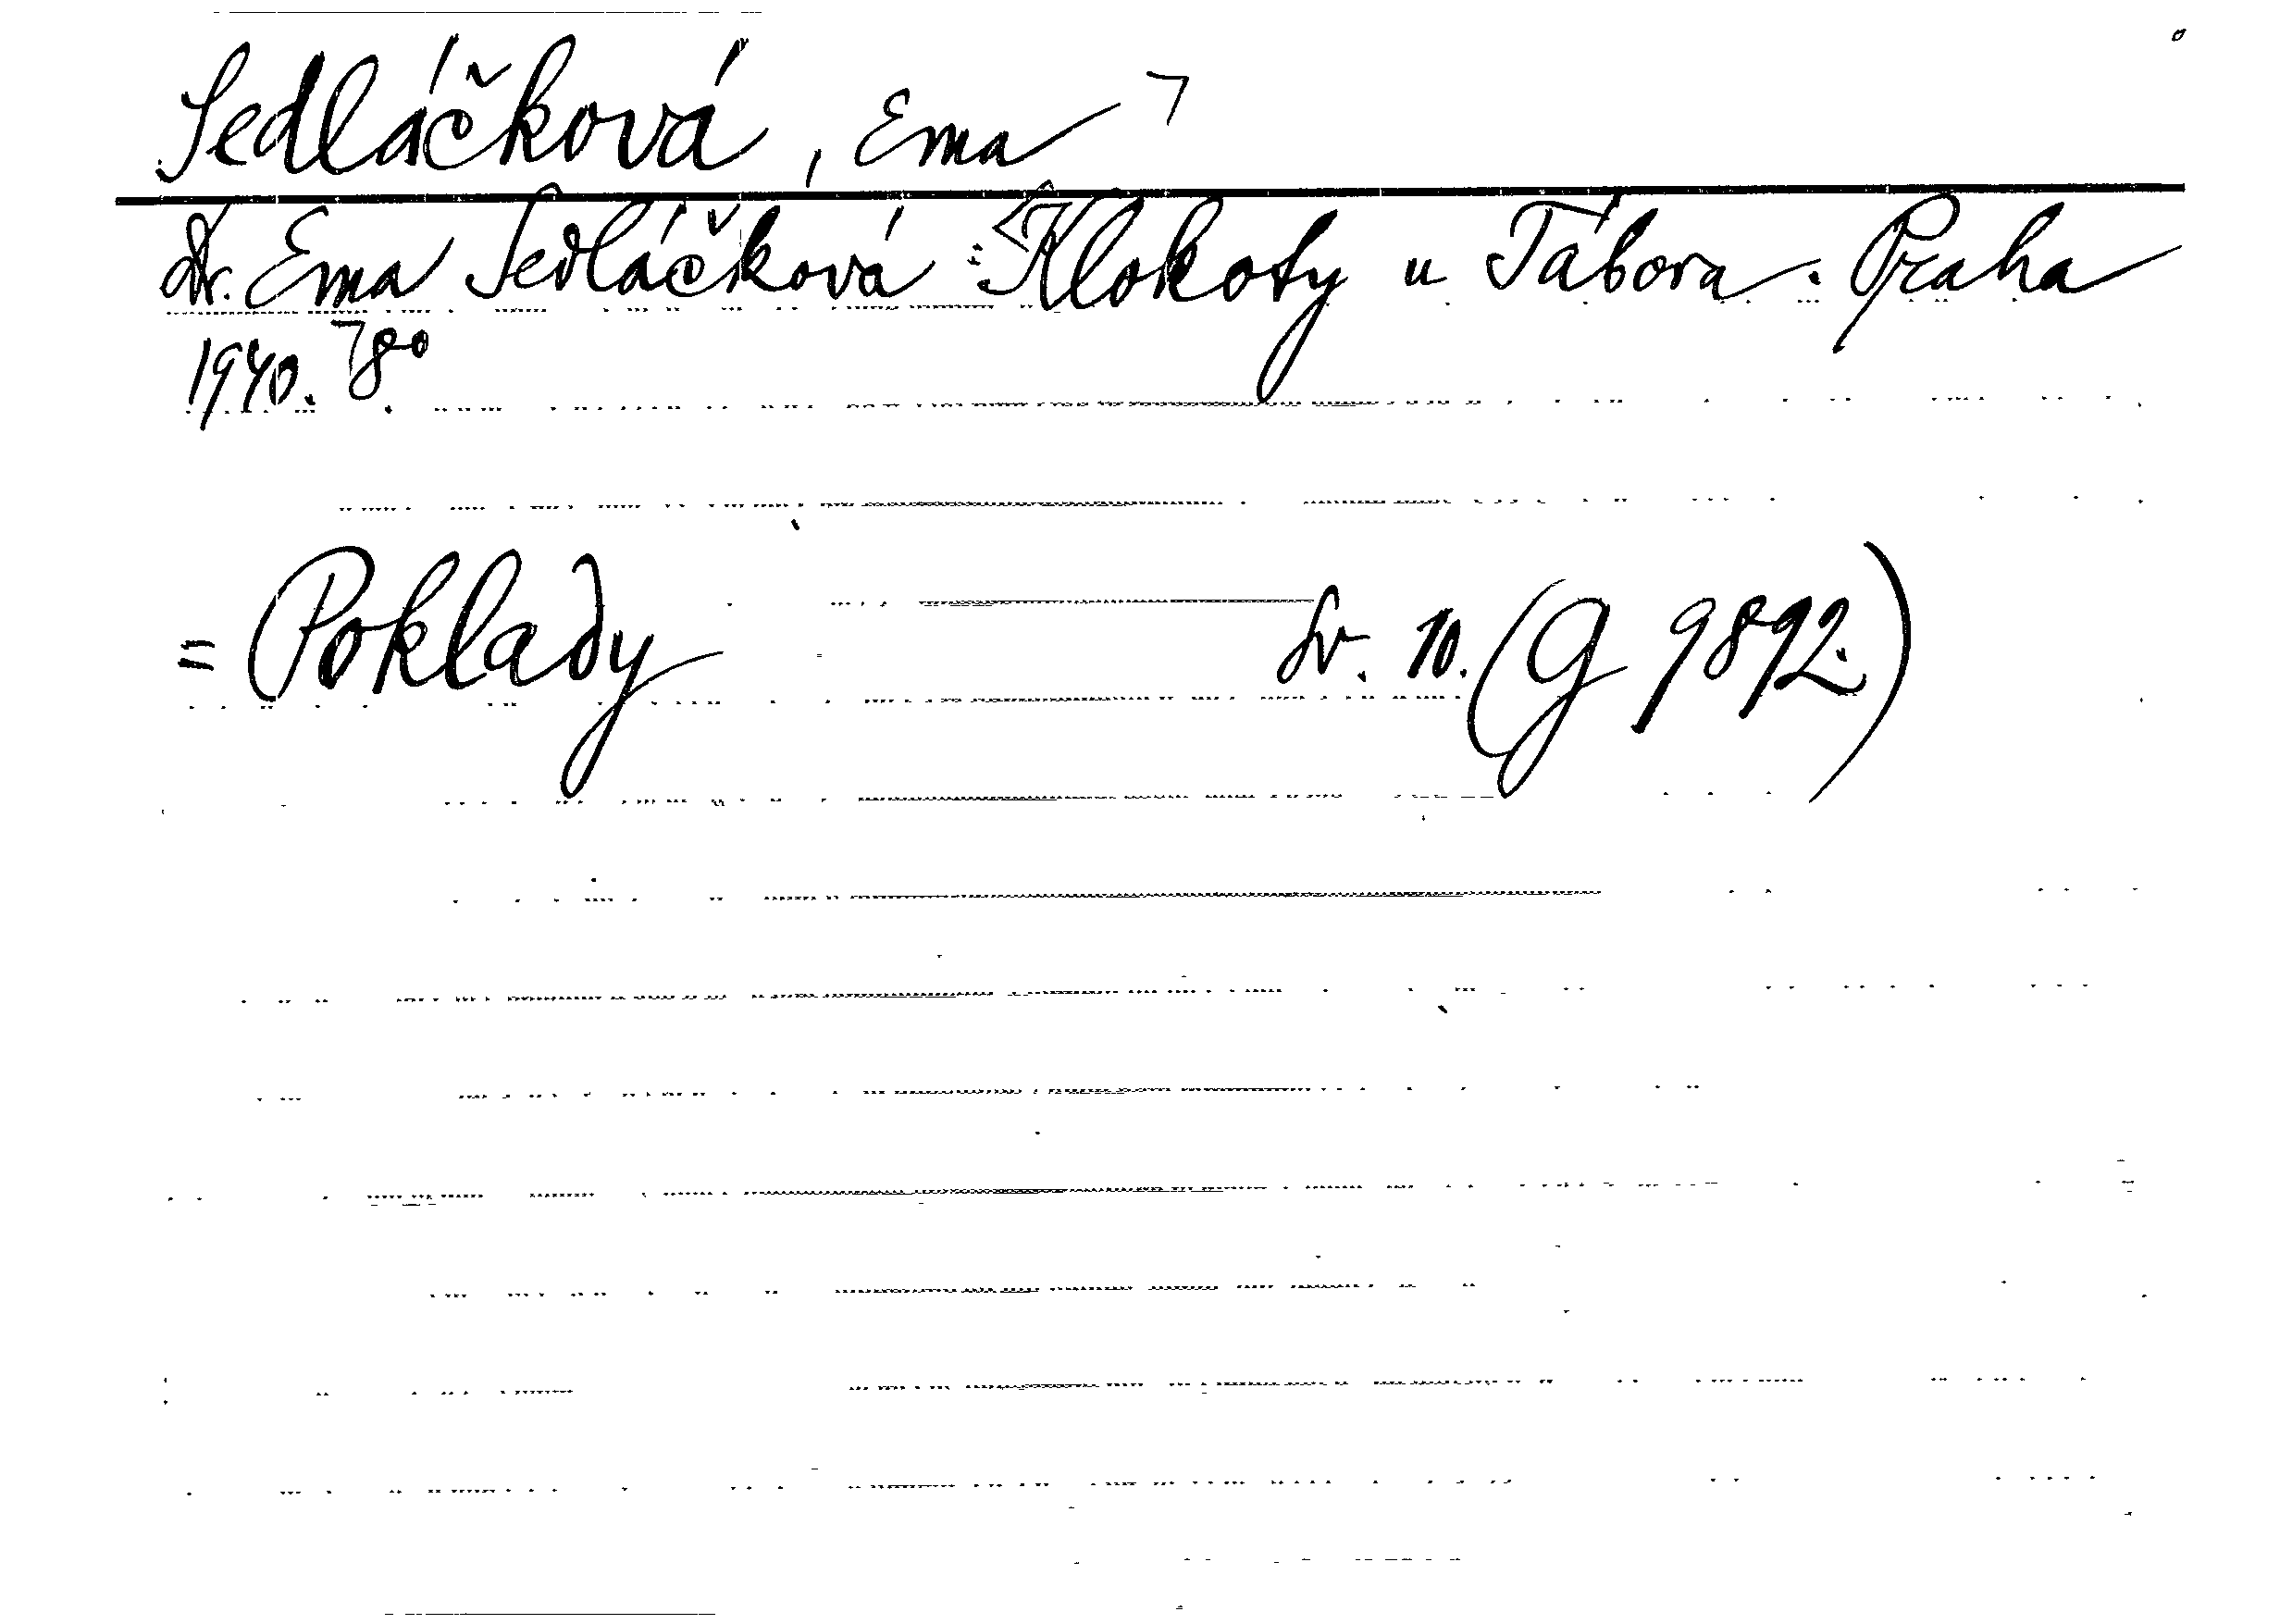 Sedláčková, Ema ⌝
Dr. Ema Sedláčková: Klokoty u Tábora. Praha
1940. ⌝8°.
= Poklady Sv. 10. (G 9892.)